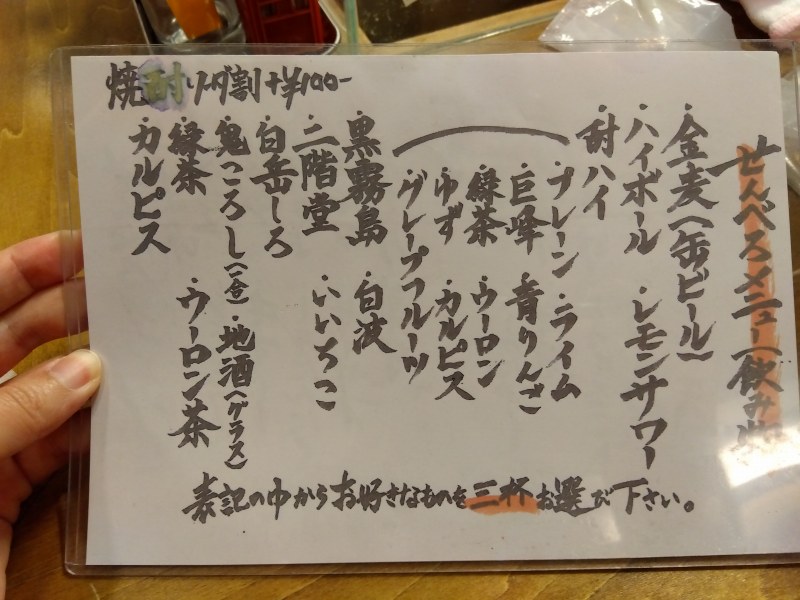 せんべろメニュー(飲み物
・金麦(缶ビール)
・ハイボール ・レモンサワー
・酎ハイ
・プレーン ・ライム
・巨峰 ・青りんご
・緑茶 ・ウーロン
・ゆず ・カルピス
・グレープフルーツ
・黒霧島 ・白波
・二階堂 ・いいちこ
・白岳しろ
・鬼ころし(一合) ・地酒(グラス)
・緑茶 ・ウーロン茶
・カルピス
焼酎ソーダ割+¥100-
表記の中からお好きなものを三杯お選び下さい。